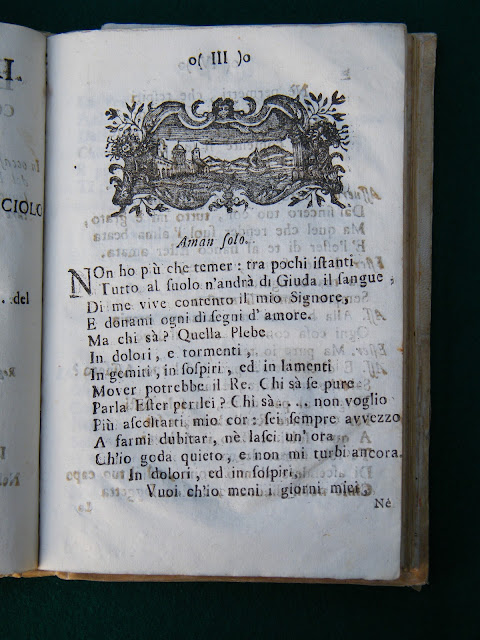 CIOLO
..del
o( III )o
Aman solo.
NOn ho più che temer: tra pochi istanti
Tutto al suolo n'andrà di Giuda il sangue;
Di me vive contento il mio Signore,
E donami ogni dì segni d'amore.
Ma chi sà? Quella Plebe
In dolori, e tormenti,
In gemiti, in sospiri, ed in lamenti
Mover potrebbe il Re. Chi sà se pure
Parla Ester per lei? Chi sà..... non voglio
Più ascoltarti mio cor: sei sempre avvezzo
A farmi dubitar, nè lasci un'ora
Ch'io goda quieto, e non mi turbi ancora.
In dolori, ed in sospiri,
Vuoi ch'io meni i giorni miei
Nè